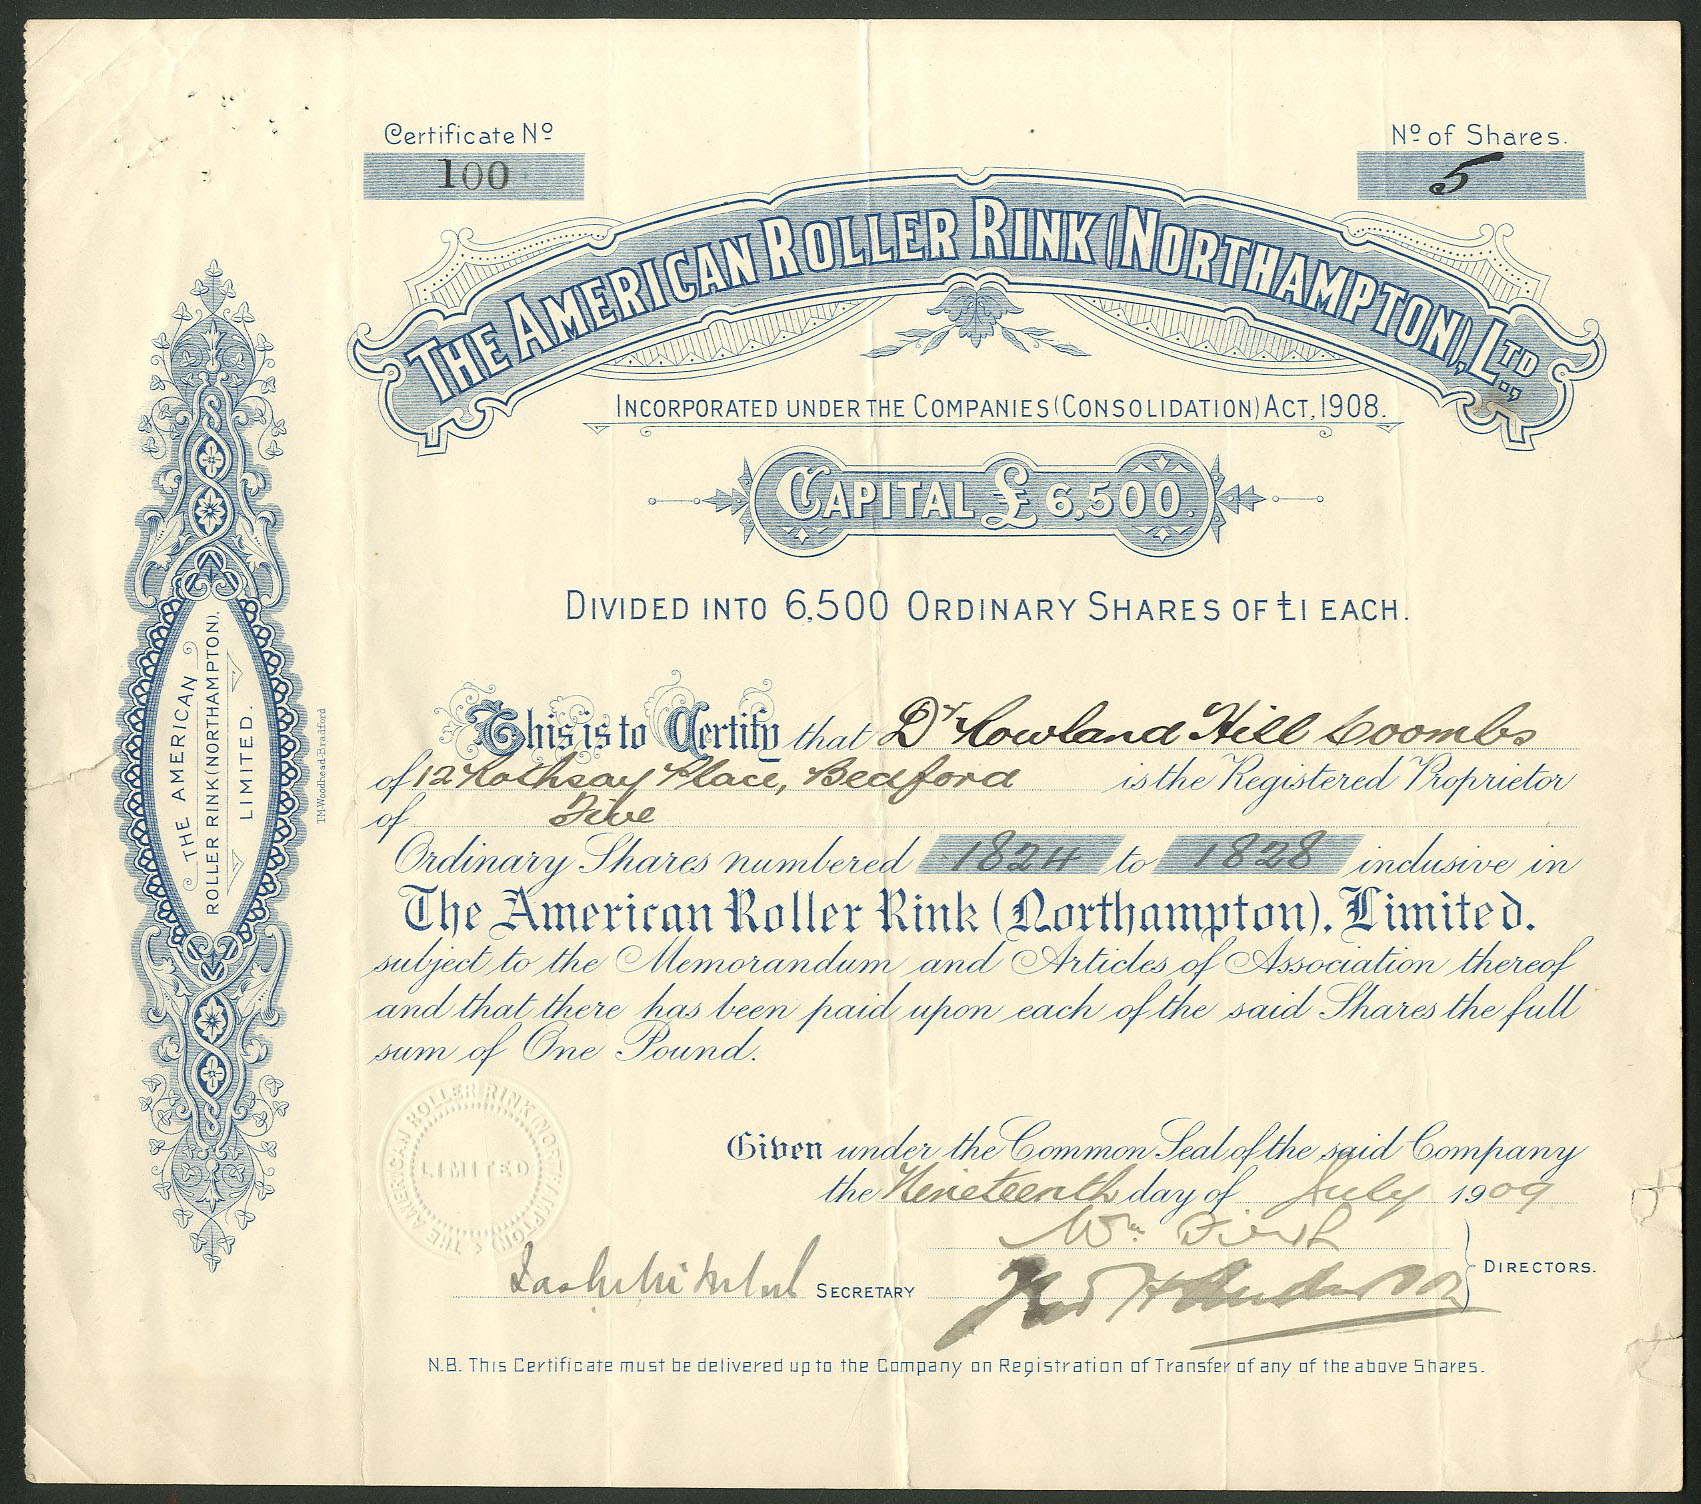 Certificate No
100
No of Shares.
5
THE AMERICAN ROLLER RINK (NORTHAMPTON), LTD.,
INCORPORATED UNDER THE COMPANIES (CONSOLIDATION) ACT, 1908.
CAPITAL £6,500.
DIVIDED INTO 6,500 ORDINARY SHARES OF £1 EACH.
This is to Certify that Dr Rowland Hill Coombs
of 12 Rothsay Place, Bedford is the Registered Proprietor
of Five
Ordinary Shares numbered 1824 to 1828 inclusive in
The American Roller Rink (Northampton), Limited.
subject to the Memorandum and Articles of Association thereof
and that there has been paid upon each of the said Shares the full
sum of One Pound.
Given under the Common Seal of the said Company
the Nineteenth day of July 1909
Wm
SECRETARY
DIRECTORS.
N.B. This Certificate must be delivered up to the Company on Registration of Transfer of any of the above Shares.
THE AMERICAN ROLLER RINK (NORTHAMPTON)
LIMITED
THE AMERICAN
ROLLER RINK (NORTHAMPTON),
LIMITED.
T.M. Woodhead-Bradford